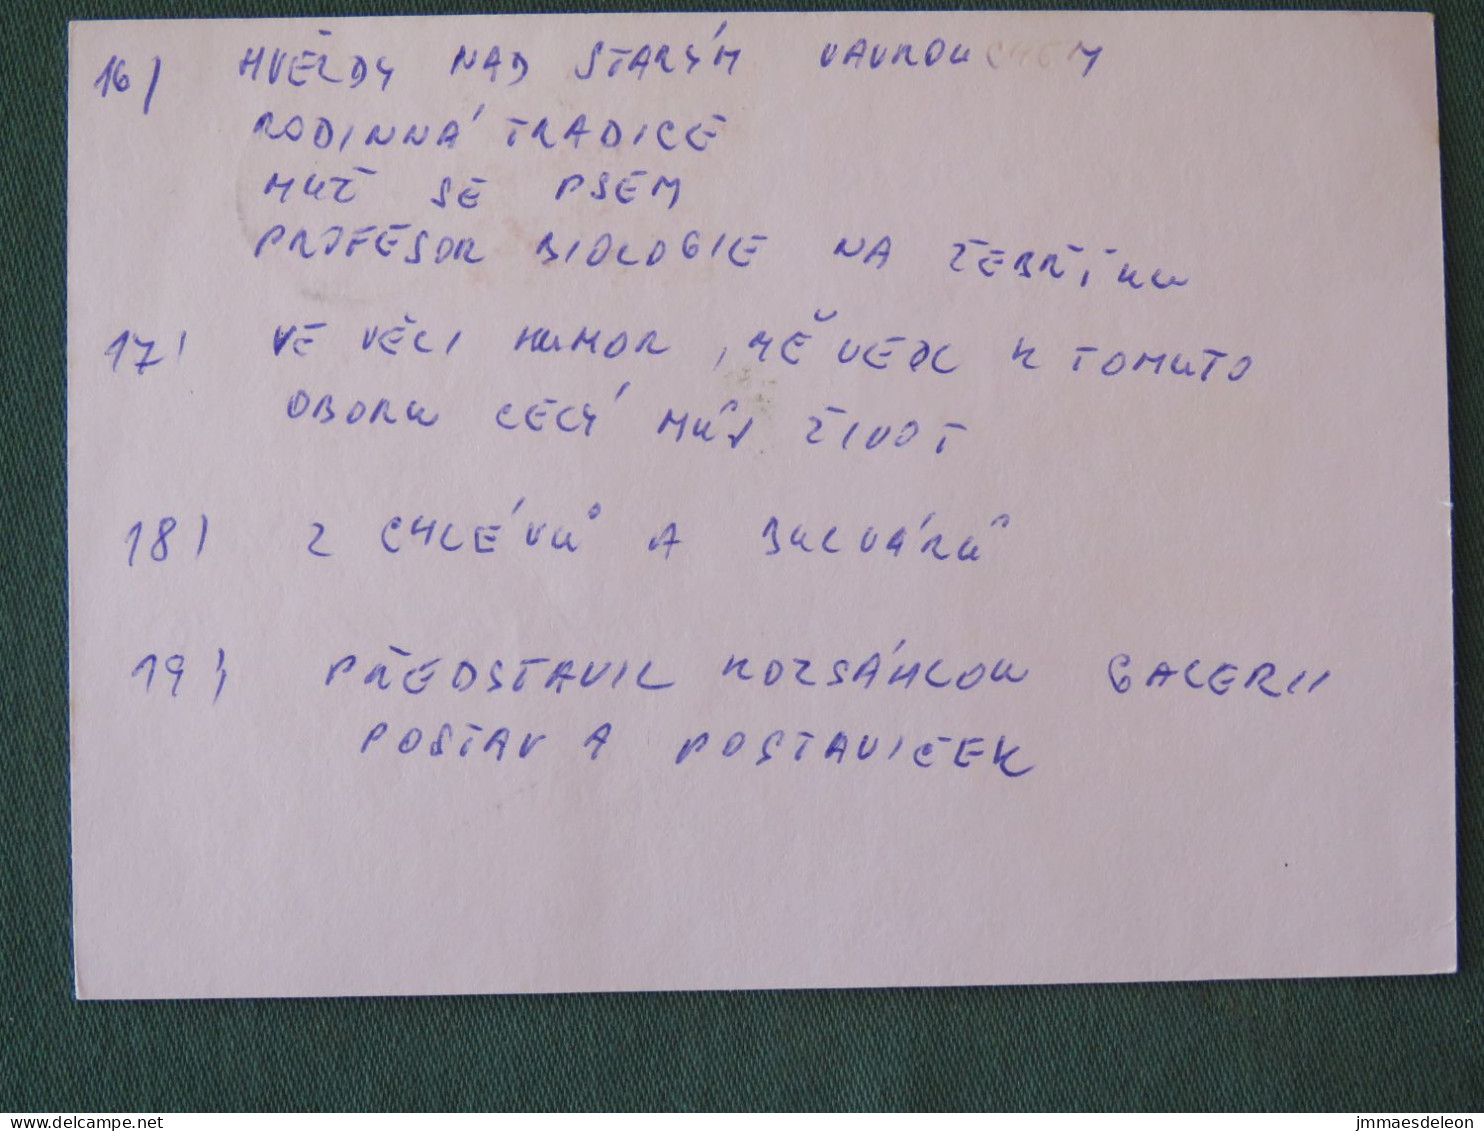 16) HVĚZDY NAD STARÝM VAVROUCHEM
RODINNÁ TRADICE
MUŽ SE PSEM
PROFESOR BIOLOGIE NA ŽEBŘÍKU
17) VE VĚCI HUMOR, MĚ VEDL K TOMUTO
OBORU CELÝ MŮJ ŽIVOT
18) Z CHLÉVŮ A BULVÁRŮ
19) PŘEDSTAVIL ROZSÁHLOU GALERII
POSTAV A POSTAVIČEK
www.delcampe.net
jmmaesdeleon